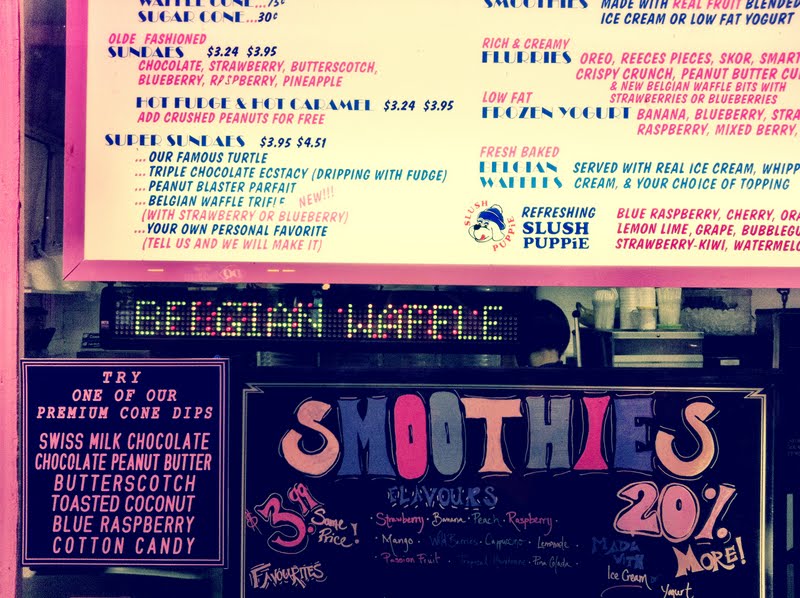 WAFFLE CONE...75¢
SUGAR CONE...30¢
OLDE FASHIONED
SUNDAES $3.24 $3.95
CHOCOLATE, STRAWBERRY, BUTTERSCOTCH,
BLUEBERRY, RASPBERRY, PINEAPPLE
HOT FUDGE & HOT CARAMEL $3.24 $3.95
ADD CRUSHED PEANUTS FOR FREE
SUPER SUNDAES $3.95 $4.51
...OUR FAMOUS TURTLE
...TRIPLE CHOCOLATE ECSTACY (DRIPPING WITH FUDGE)
...PEANUT BLASTER PARFAIT
...BELGIAN WAFFLE TRIFLE NEW!!!
(WITH STRAWBERRY OR BLUEBERRY)
...YOUR OWN PERSONAL FAVORITE
(TELL US AND WE WILL MAKE IT)
SMOOTHIES MADE WITH REAL FRUIT BLENDED
ICE CREAM OR LOW FAT YOGURT
RICH & CREAMY
FLURRIES OREO, REECES PIECES, SKOR, SMART
CRISPY CRUNCH, PEANUT BUTTER CU
& NEW BELGIAN WAFFLE BITS WITH
STRAWBERRIES OR BLUEBERRIES
LOW FAT
FROZEN YOGURT BANANA, BLUEBERRY, STRA
RASPBERRY, MIXED BERRY,
FRESH BAKED
BELGIAN SERVED WITH REAL ICE CREAM, WHIPP
WAFFLES CREAM, & YOUR CHOICE OF TOPPING
SLUSH PUPPiE
REFRESHING BLUE RASPBERRY, CHERRY, ORA
SLUSH LEMON LIME, GRAPE, BUBBLEGU
PUPPiE STRAWBERRY-KIWI, WATERMELO
BELGIAN WAFFLE
TRY
ONE OF OUR
PREMIUM CONE DIPS
SWISS MILK CHOCOLATE
CHOCOLATE PEANUT BUTTER
BUTTERSCOTCH
TOASTED COCONUT
BLUE RASPBERRY
COTTON CANDY
SMOOTHIES
$3.99
Same Price!
FLAVOURS
Strawberry · Banana · Peach · Raspberry ·
· Mango · Wild Berries · Cappucino · Lemonade ·
· Passion Fruit · Tropical Hurricane · Pina Colada ·
FAVOURITES
20% MORE!
MADE WITH
Ice Cream
Yogurt